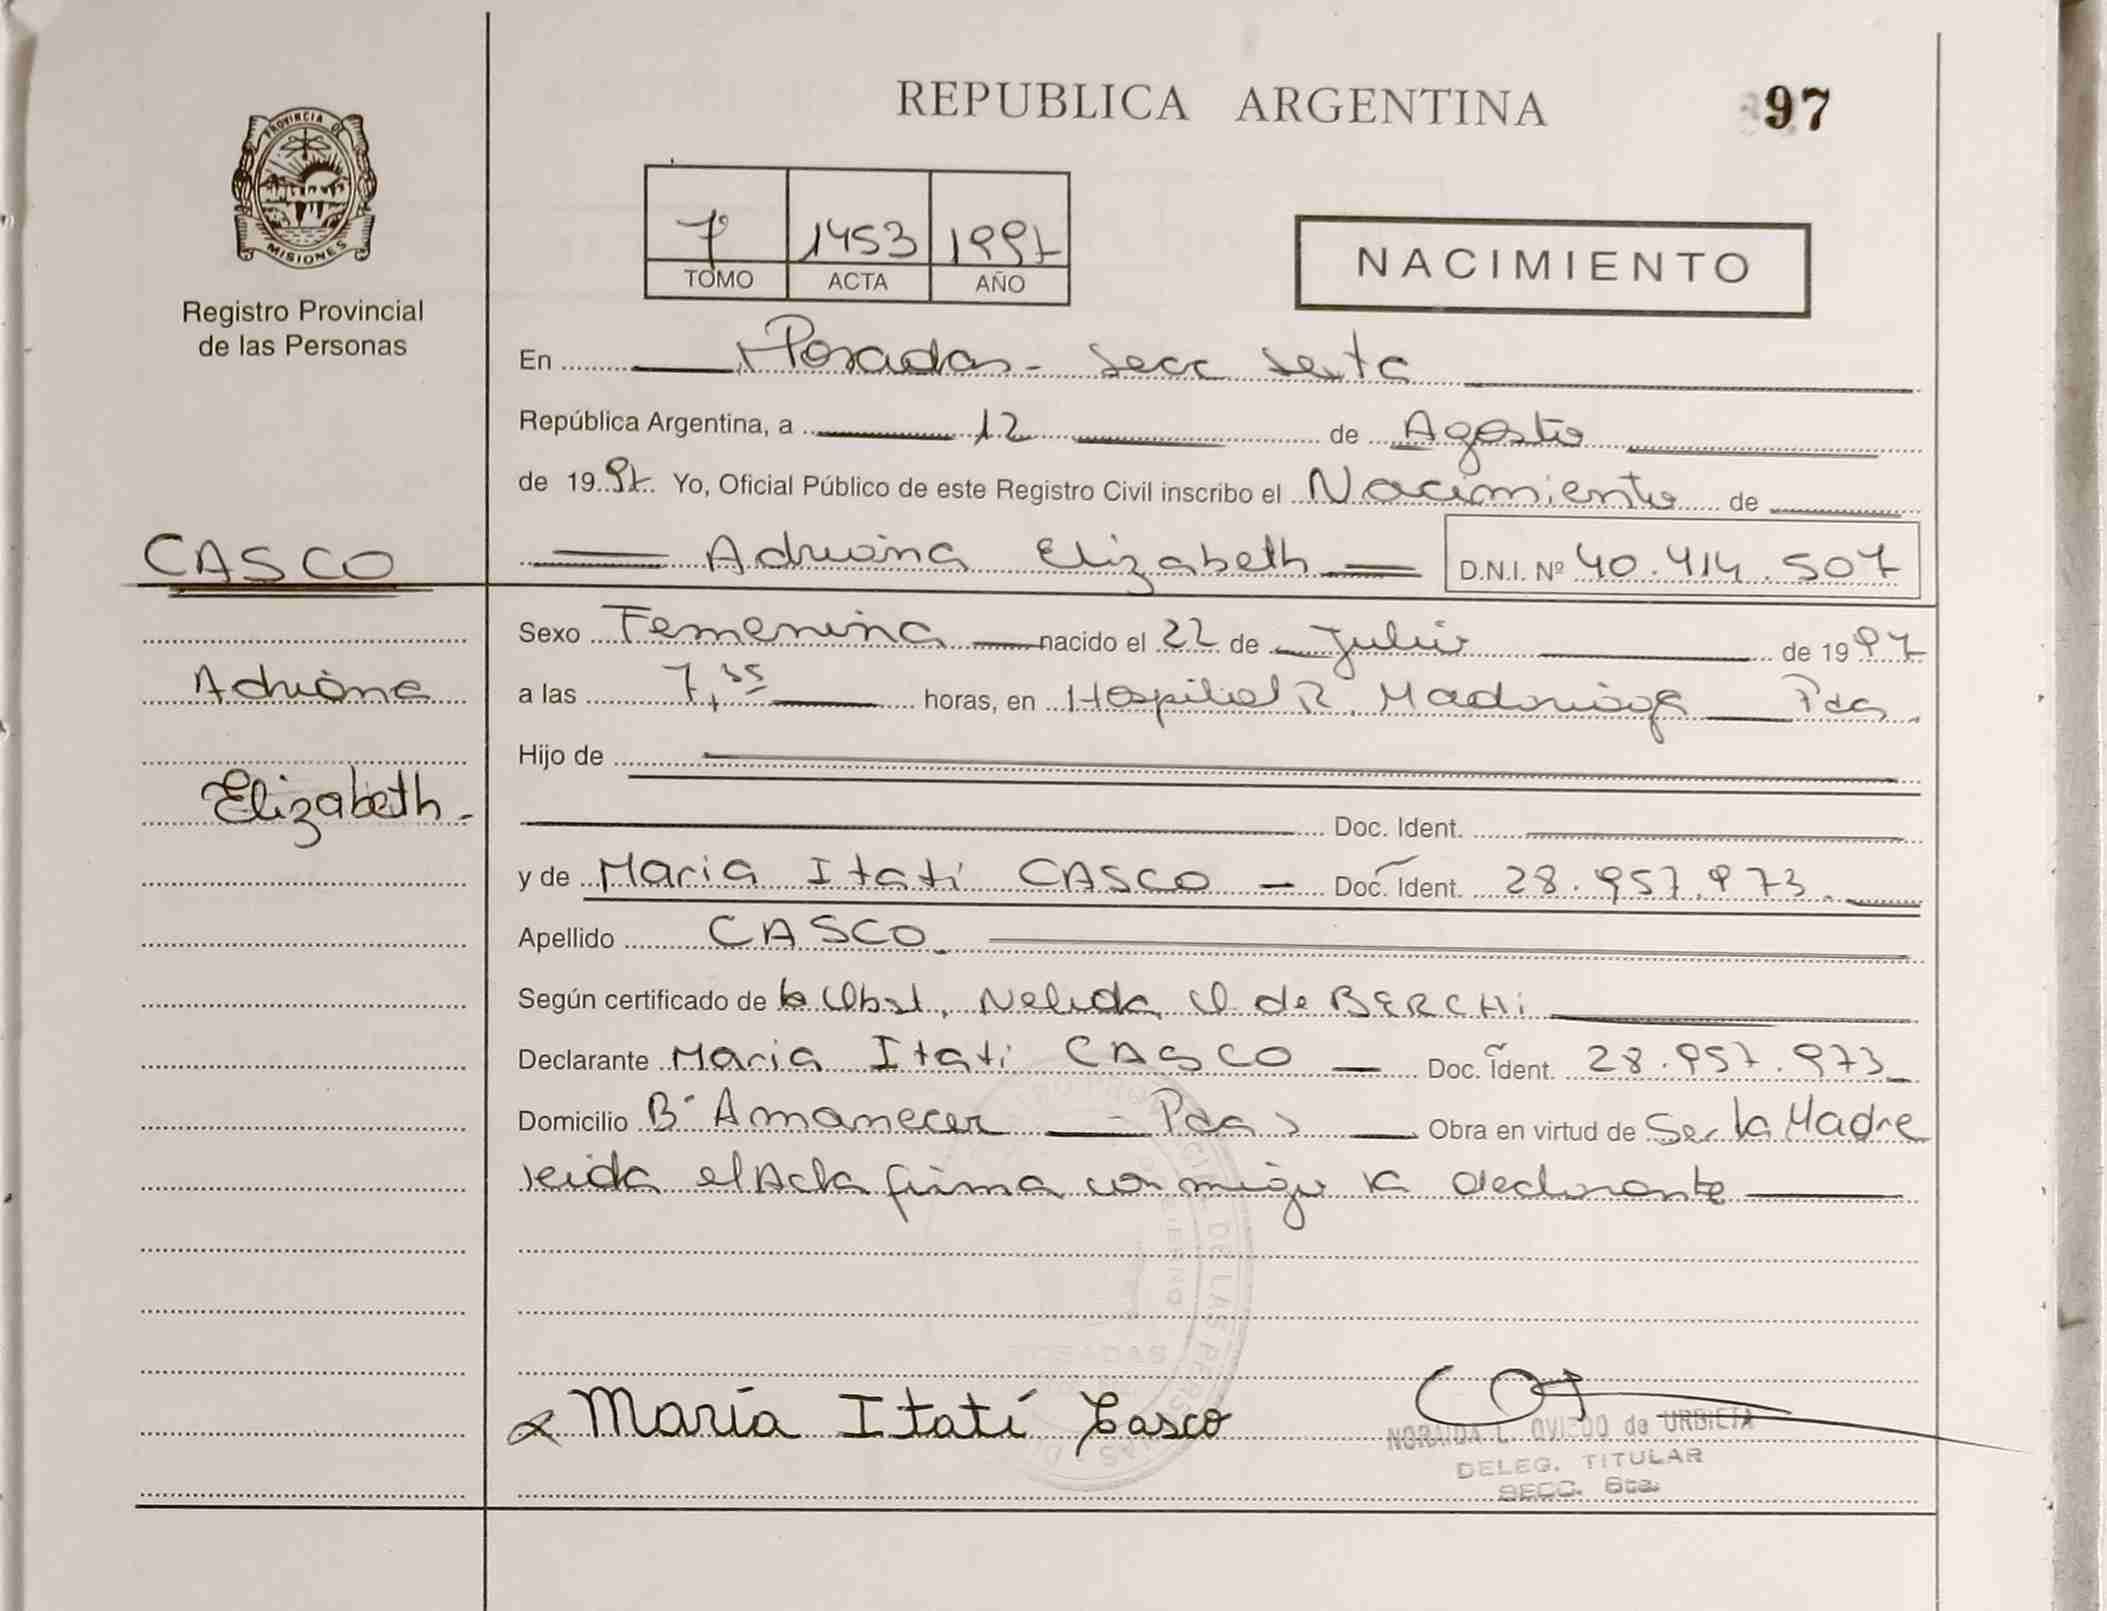 REPUBLICA ARGENTINA
97
PROVINCIA DE
MISIONES
Registro Provincial
de las Personas
7º 1453 1997
TOMO ACTA AÑO
NACIMIENTO
En Posadas - Secc Sexta
República Argentina, a 12 de Agosto
de 1997 Yo, Oficial Público de este Registro Civil inscribo el Nacimiento de
CASCO
Adriana Elizabeth D.N.I. Nº 40.414.507
Sexo Femenina nacido el 22 de Julio de 1997
Adriana
a las 7,35 horas, en Hospital R. Madariaga Pdas.
Hijo de
Elizabeth.
Doc. Ident.
y de Maria Itati CASCO - Doc. Ident. 28.957.973.
Apellido CASCO.
Según certificado de la Obst. Nelida O de BERCHi
Declarante Maria Itati CASCO - Doc. Ident. 28.957.973
Domicilio Bº Amanecer - Pdas Obra en virtud de Ser la Madre
leida el Acta firma con migo la declarante
María Itatí Casco
OVIEDO de URBIETA
DELEG. TITULAR
SECC. 6ta.
POSADAS